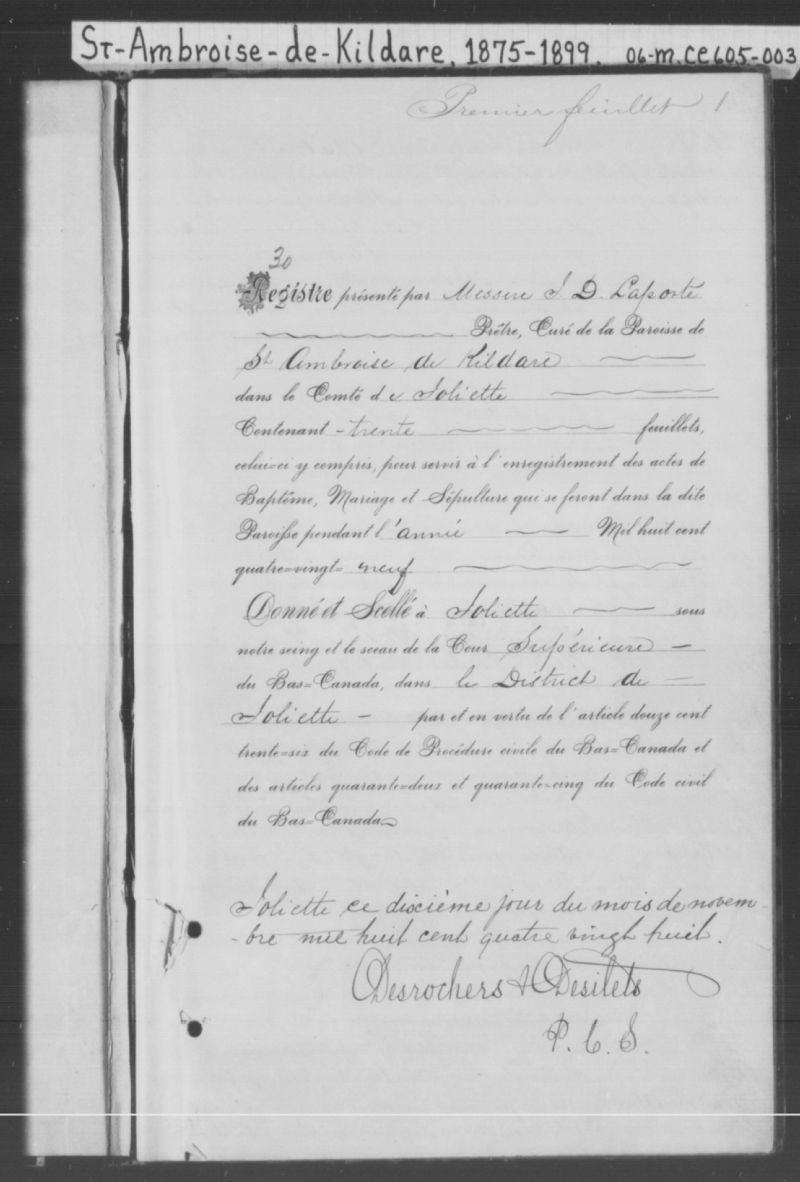 St-Ambroise-de-Kildare, 1875-1899. 06-M.CE605-003
Premier feuillet 1
30
Registre présenté par Messire J. D. Laporte
Prêtre, Curé de la Paroisse de
St Ambroise de Kildare
dans le Comté de Joliette
Contenant - trente feuillets,
celui=ci y compris, pour servir à l'enregistrement des actes de
Baptême, Mariage et Sépulture qui se feront dans la dite
Paroisse pendant l'année Mil huit cent
quatre=vingt= neuf
Donné et Scellé à Joliette sous
notre seing et le sceau de la Cour Supérieure -
du Bas=Canada, dans le District de -
Joliette - par et en vertu de l'article douze cent
trente=six du Code de Procédure civile du Bas=Canada et
des articles quarante=deux et quarante=cinq du Code civil
du Bas=Canada
Joliette ce dixième jour du mois de novem-
-bre mil huit cent quatre vingt huit.
Desrochers & Desilets
P. C. S.